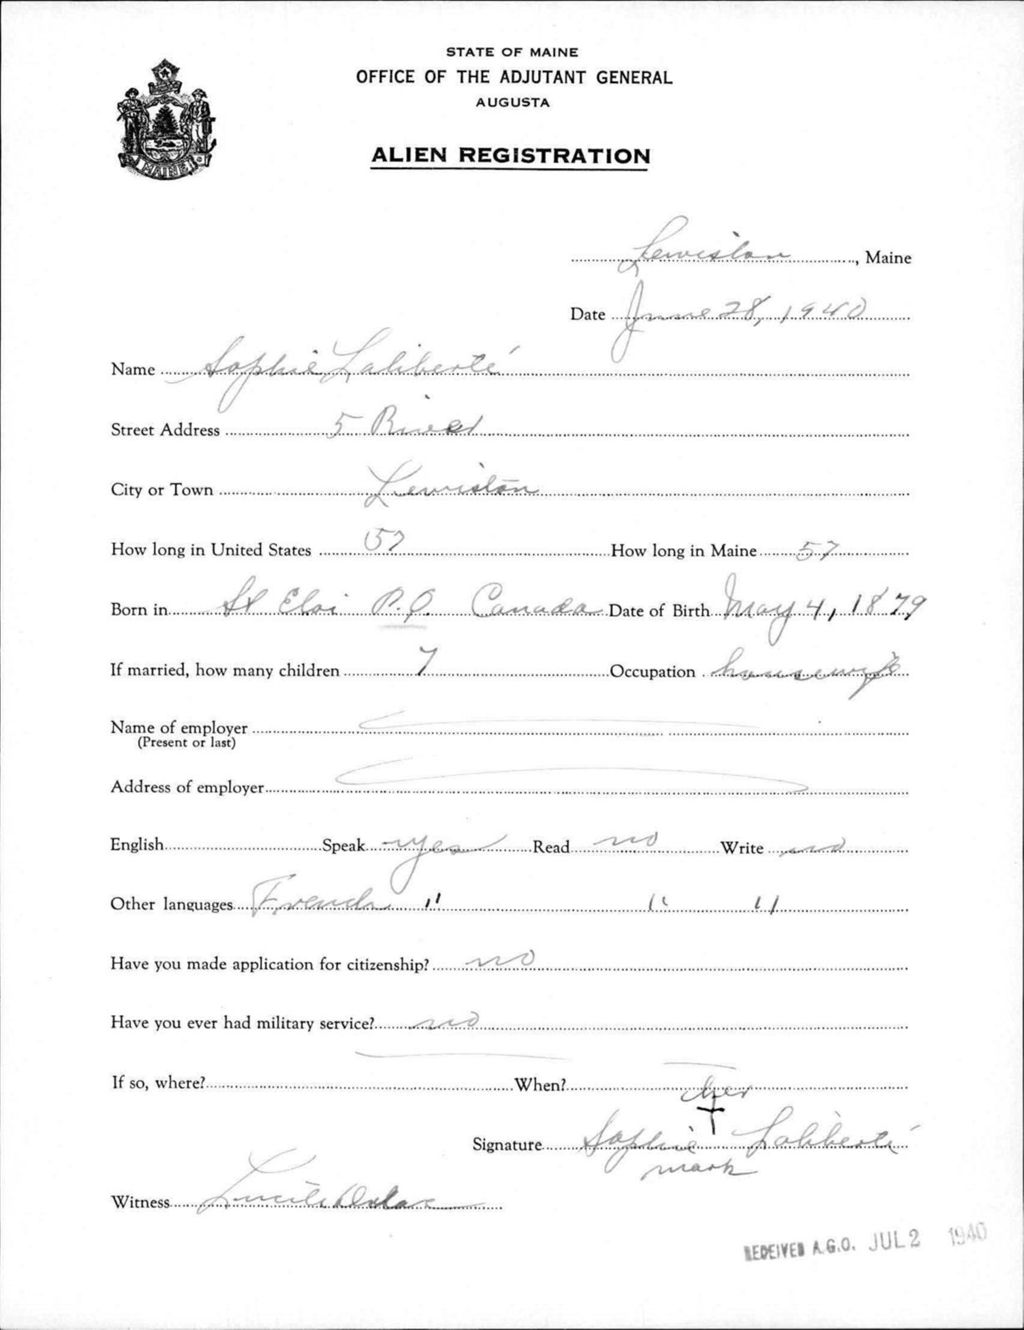 STATE OF MAINE
OFFICE OF THE ADJUTANT GENERAL
AUGUSTA
ALIEN REGISTRATION
MAINE
Lewiston, Maine
Date June 28, 1940
Name Sophie Laliberté
Street Address 5 River
City or Town Lewiston
How long in United States 57 How long in Maine 57
Born in St Eloi P.Q. Canada Date of Birth May 4, 1879
If married, how many children 7 Occupation housewife
Name of employer
(Present or last)
Address of employer
English Speak yes Read no Write no
Other languages French " " "
Have you made application for citizenship? no
Have you ever had military service? no
If so, where? When?
her
Signature Sophie † Laliberté
mark
Witness Lucile
RECEIVED A.G.O. JUL 2 1940